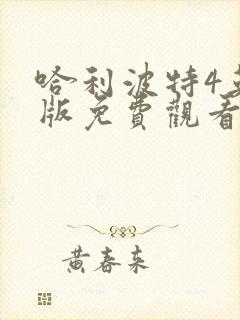 哈利波特4
版免費觀看
黃春来